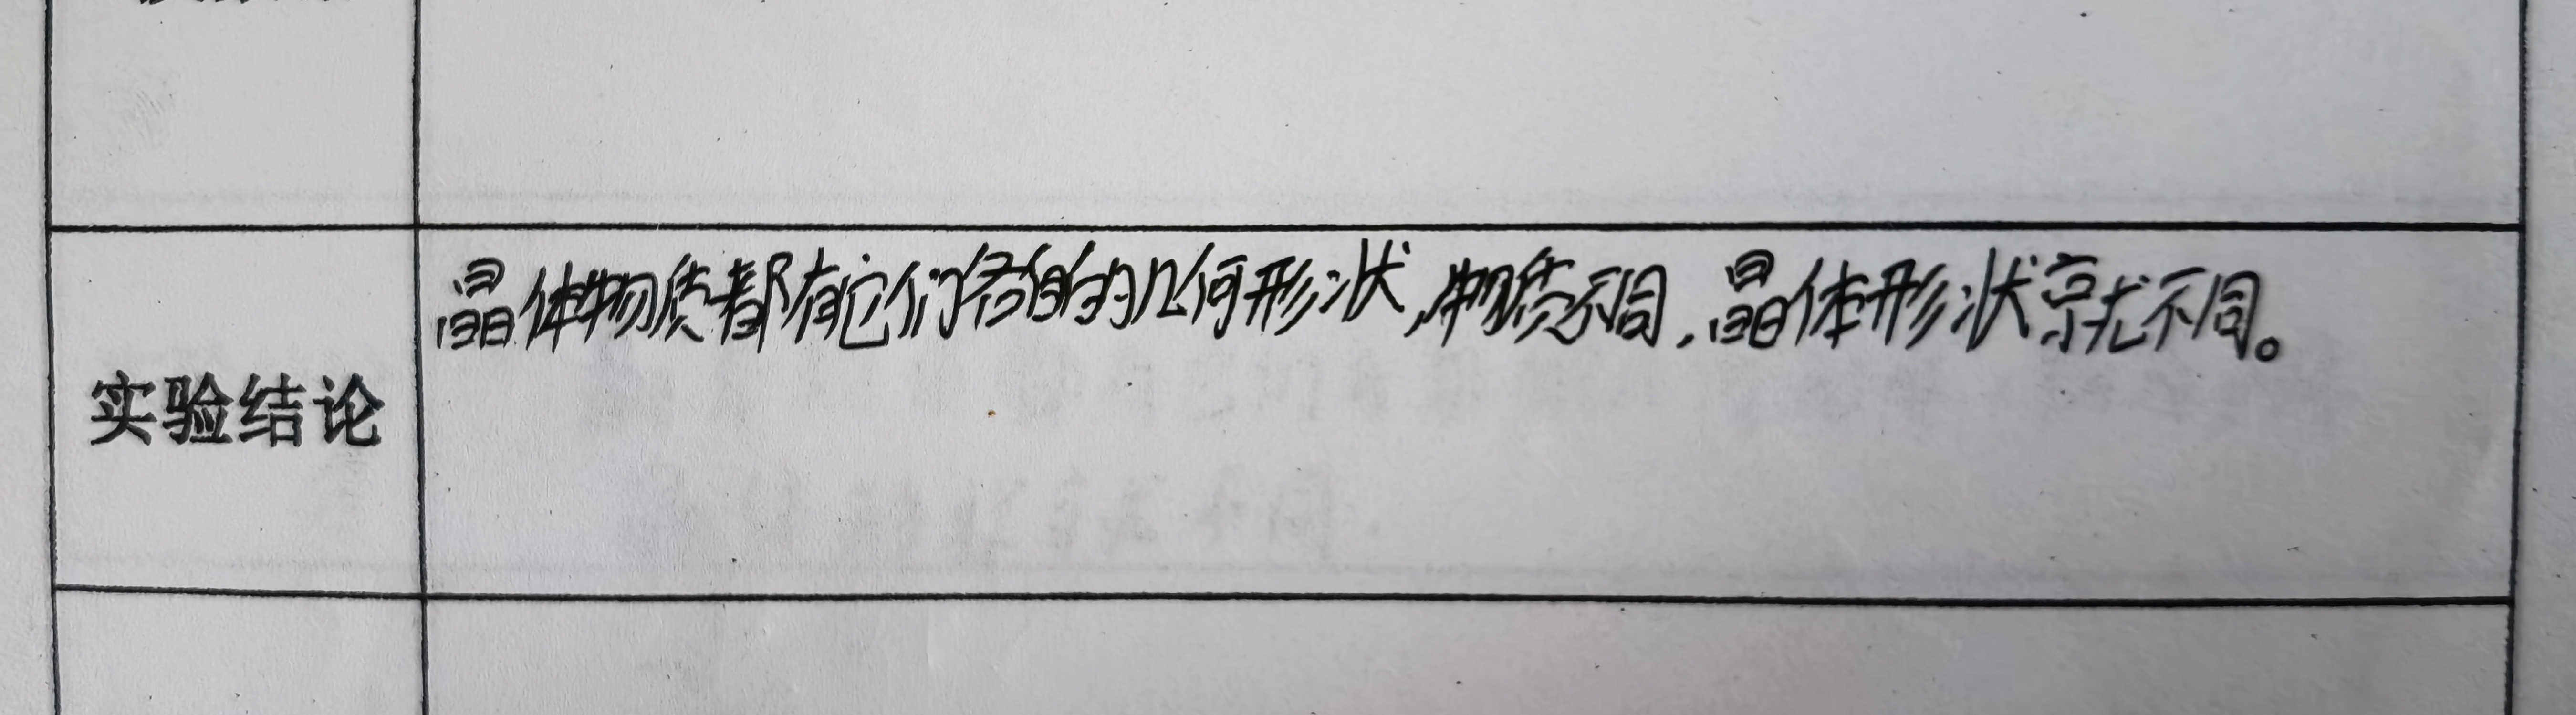 晶体物质都有它们各自的几何形状,物质不同,晶体形状就不同。
实验结论